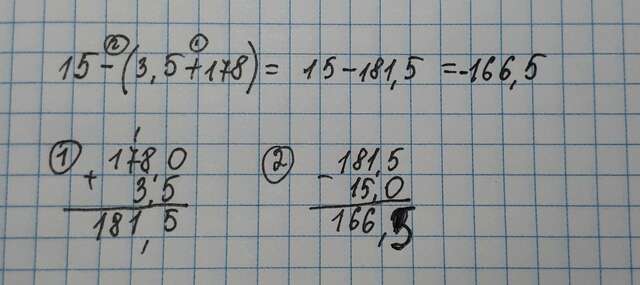 ② ①
15-(3,5+178)= 15-181,5 =-166,5
① + 178,0
3,5
181,5
② - 181,5
15,0
166,5